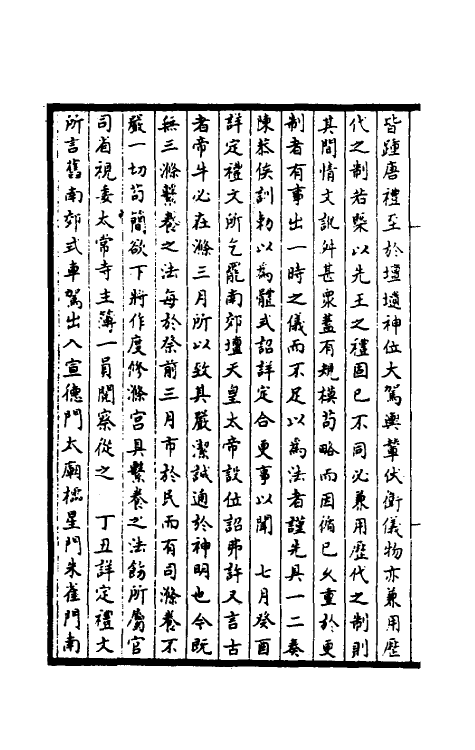 皆踵唐禮至於壇壝神位大駕輿輦伏衛儀物亦兼用歷
代之制若槩以先王之禮固已不同必兼用歷代之制則
其間情文訛舛甚衆蓋有規模苟略而因循已久重於更
制者有事出一時之儀而不足以為法者謹先具一二奏
陳恭俟訓勅以為體式詔詳定合更事以聞　七月癸酉
詳定禮文所乞罷南郊壇天皇太帝設位詔弗許又言古
者帝牛必在滌三月所以致其嚴潔誠通於神明也今既
無三滌繫養之法每於祭前三月市於民而有司滌養不
嚴一切苟簡欲下將作度修滌宫具繫養之法飭所屬官
司省視委太常寺主簿一員閱察從之　丁丑詳定禮文
所言舊南郊式車駕出入宣德門太廟櫺星門朱雀門南